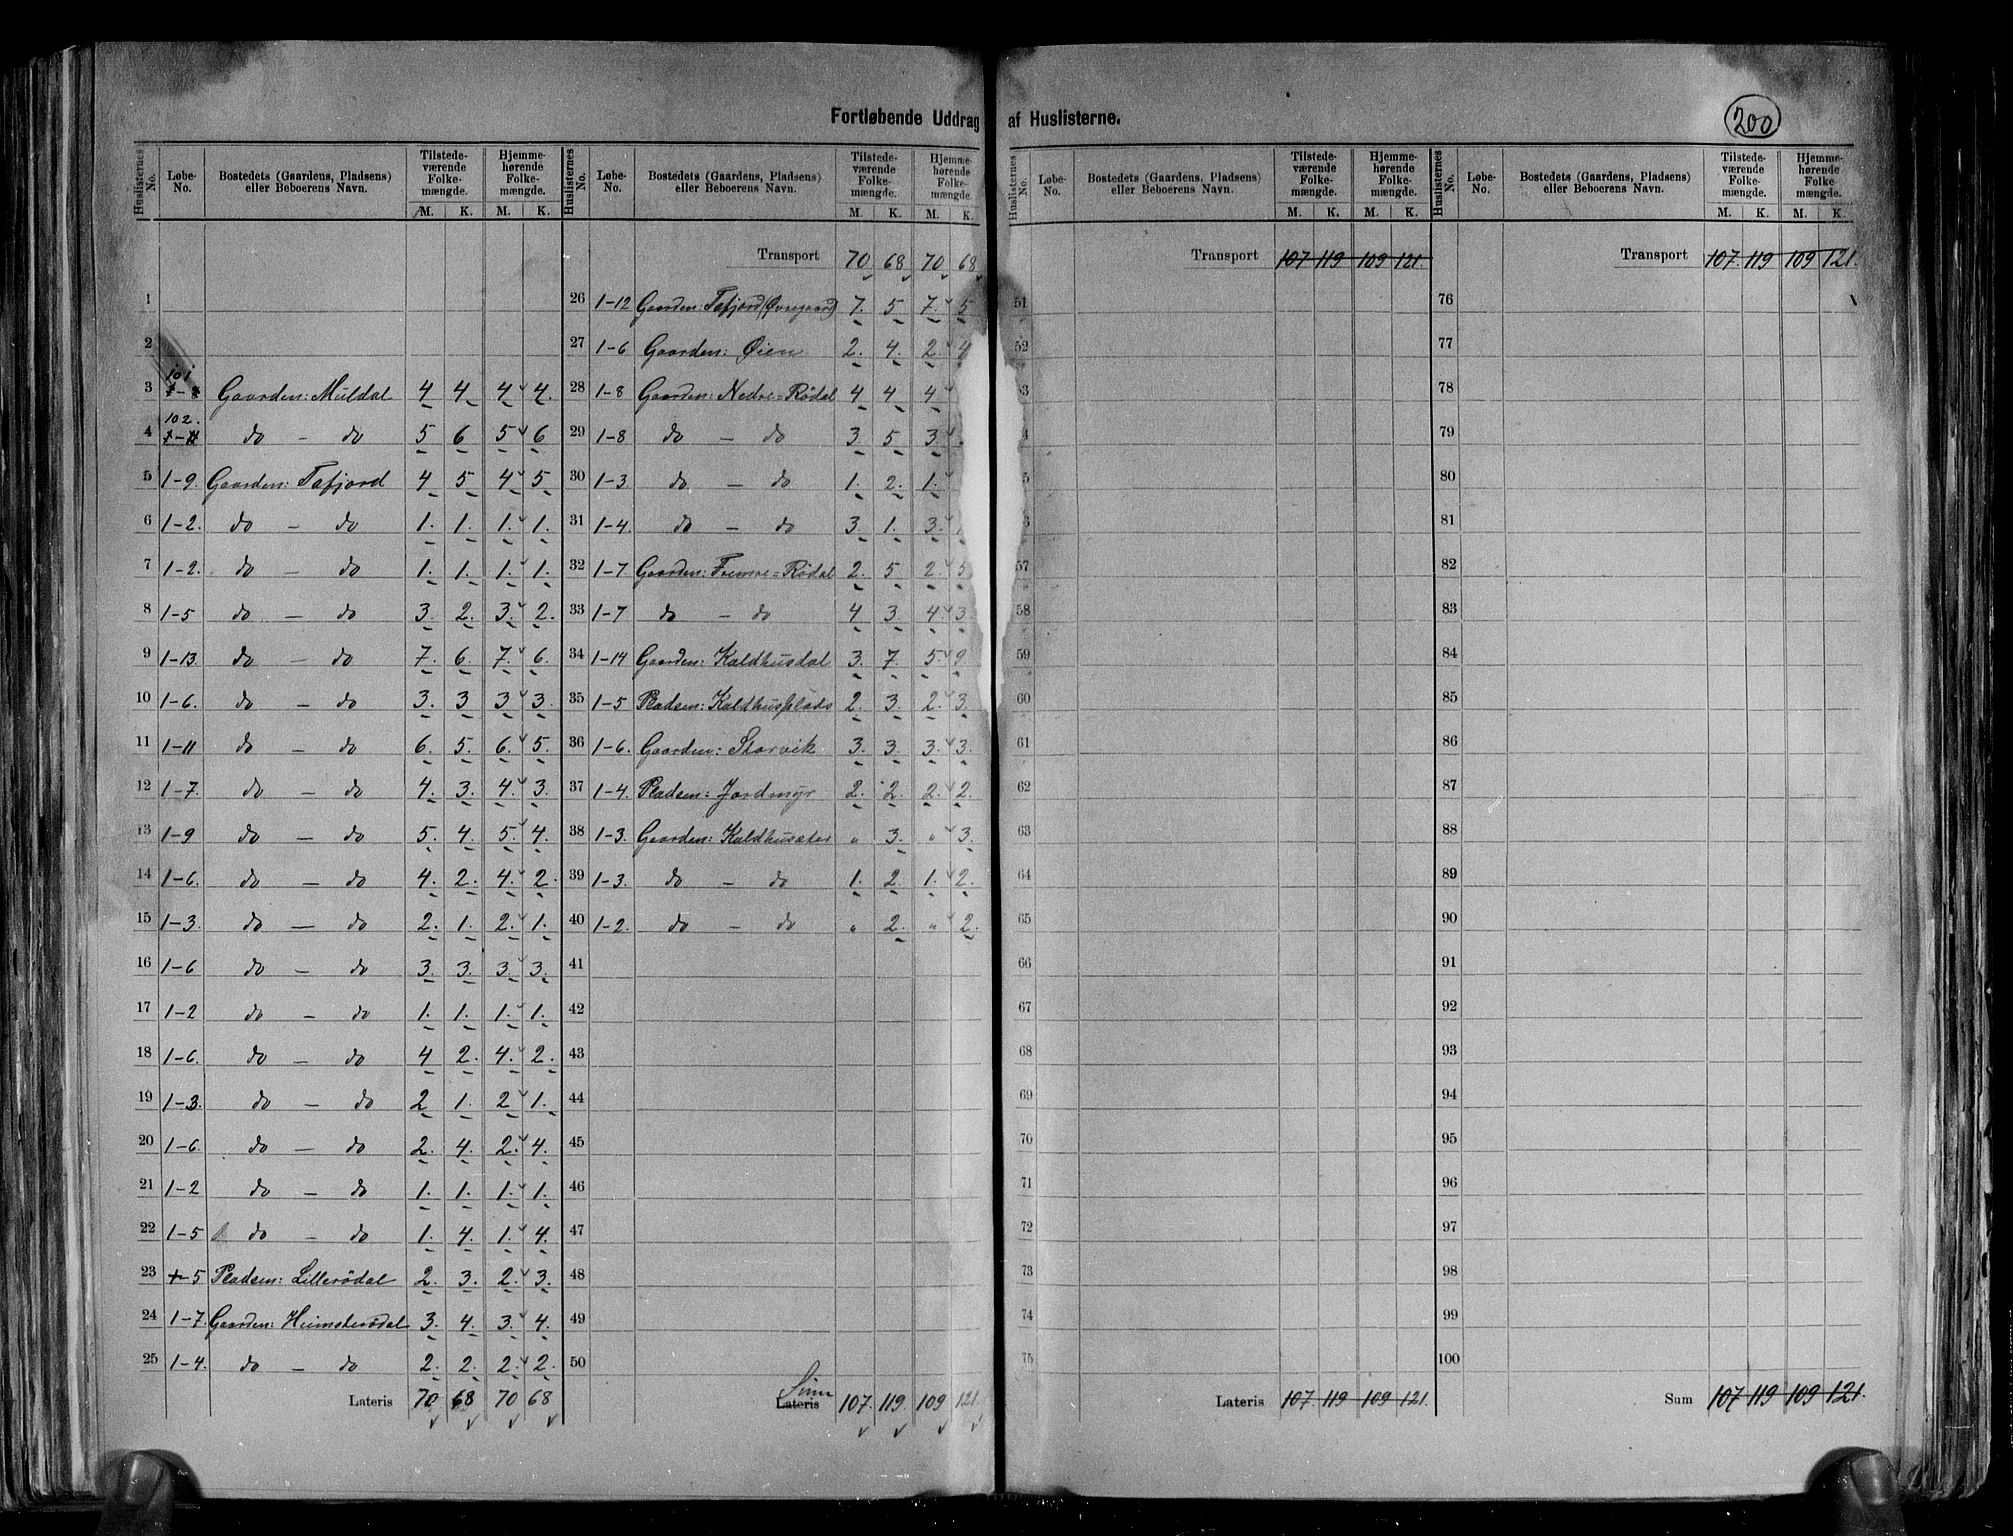 Fortløbende Uddrag af Huslisterne.
200
Huslisternes No. Løbe-No. Bostedets (Gaardens, Pladsens) eller Beboerens Navn. Tilstedeværende Folkemængde. M. K. Hjemmehørende Folkemængde. M. K.
1
2
3 101 Gaarden: Muldal 4 4 4 4.
4 102. do – do 5 6 5 6
5 1-9. Gaarden: Tafjord 4 5 4 5
6 1-2. do – do 1. 1. 1. 1.
7 1-2. do – do 1. 1. 1. 1.
8 1-5 do – do 3. 2. 3. 2.
9 1-13. do – do 7. 6. 7. 6.
10 1-6. do – do 3. 3 3 3.
11 1-11 do – do 6. 5. 6. 5.
12 1-7. do – do 4. 3. 4. 3.
13 1-9 do – do 5. 4. 5. 4.
14 1-6. do – do 4. 2. 4. 2.
15 1-3. do – do 2. 1. 2. 1.
16 1-6 do – do 3. 3. 3. 3.
17 1-2 do – do 1. 1. 1. 1.
18 1-6. do – do 4 2. 4. 2.
19 1-3. do – do 2 1. 2 1.
20 1-6. do – do 2. 4. 2. 4.
21 1-2 do – do 1. 1. 1. 1.
22 1-5 do – do 1. 4. 1. 4.
23 1-5 Pladsen: Lillerödal 2. 3. 2. 3.
24 1-7. Gaarden: Heimsterödal 3. 4. 3. 4.
25 1-4. do – do 2. 2. 2. 2.
Lateris 70 68 70 68
Huslisternes No. Løbe-No. Bostedets (Gaardens, Pladsens) eller Beboerens Navn. Tilstedeværende Folkemængde. M. K. Hjemmehørende Folkemængde. M. K.
Transport 70 68 70 68
26 1-12 Gaarden: Tafjord (Øvregaard) 7. 5 7. 5
27 1-6 Gaarden: Øien 2. 4. 2. 4
28 1-8 Gaarden: Nedre=Rödal 4 4 4
29 1-8 do – do 3. 5 3.
30 1-3. do – do 1. 2. 1.
31 1-4. do – do 3. 1. 3.
32 1-7 Gaarden: Fremre=Rödal 2. 5 2. 5
33 1-7 do – do 4 3. 4. 3.
34 1-14 Gaarden: Kaldhusdal 3. 7. 5. 9.
35 1-5 Pladsen: Kaldhusplads 2. 3. 2. 3.
36 1-6. Gaarden: Storvik 3. 3. 3. 3.
37 1-4. Pladsen: Jordmyr 2. 2. 2. 2.
38 1-3. Gaarden: Kaldhusæter " 3. " 3.
39 1-3. do – do 1. 2. 1. 2.
40 1-2. do – do " 2. " 2.
41
42
43
44
45
46
47
48
49
50
Sum
Lateris 107. 119. 109 121.
Huslisternes No. Løbe-No. Bostedets (Gaardens, Pladsens) eller Beboerens Navn. Tilstedeværende Folkemængde. M. K. Hjemmehørende Folkemængde. M. K.
Transport 107 119 109 121.
51
52
57
58
59
60
61
62
63
64
65
66
67
68
69
70
71
72
73
74
75
Lateris 107. 119 109 121.
Huslisternes No. Løbe-No. Bostedets (Gaardens, Pladsens) eller Beboerens Navn. Tilstedeværende Folkemængde. M. K. Hjemmehørende Folkemængde. M. K.
Transport 107. 119 109 121.
76
77
78
79
80
81
82
83
84
85
86
87
88
89
90
91
92
93
94
95
96
97
98
99
100
Sum 107 119 109 121.